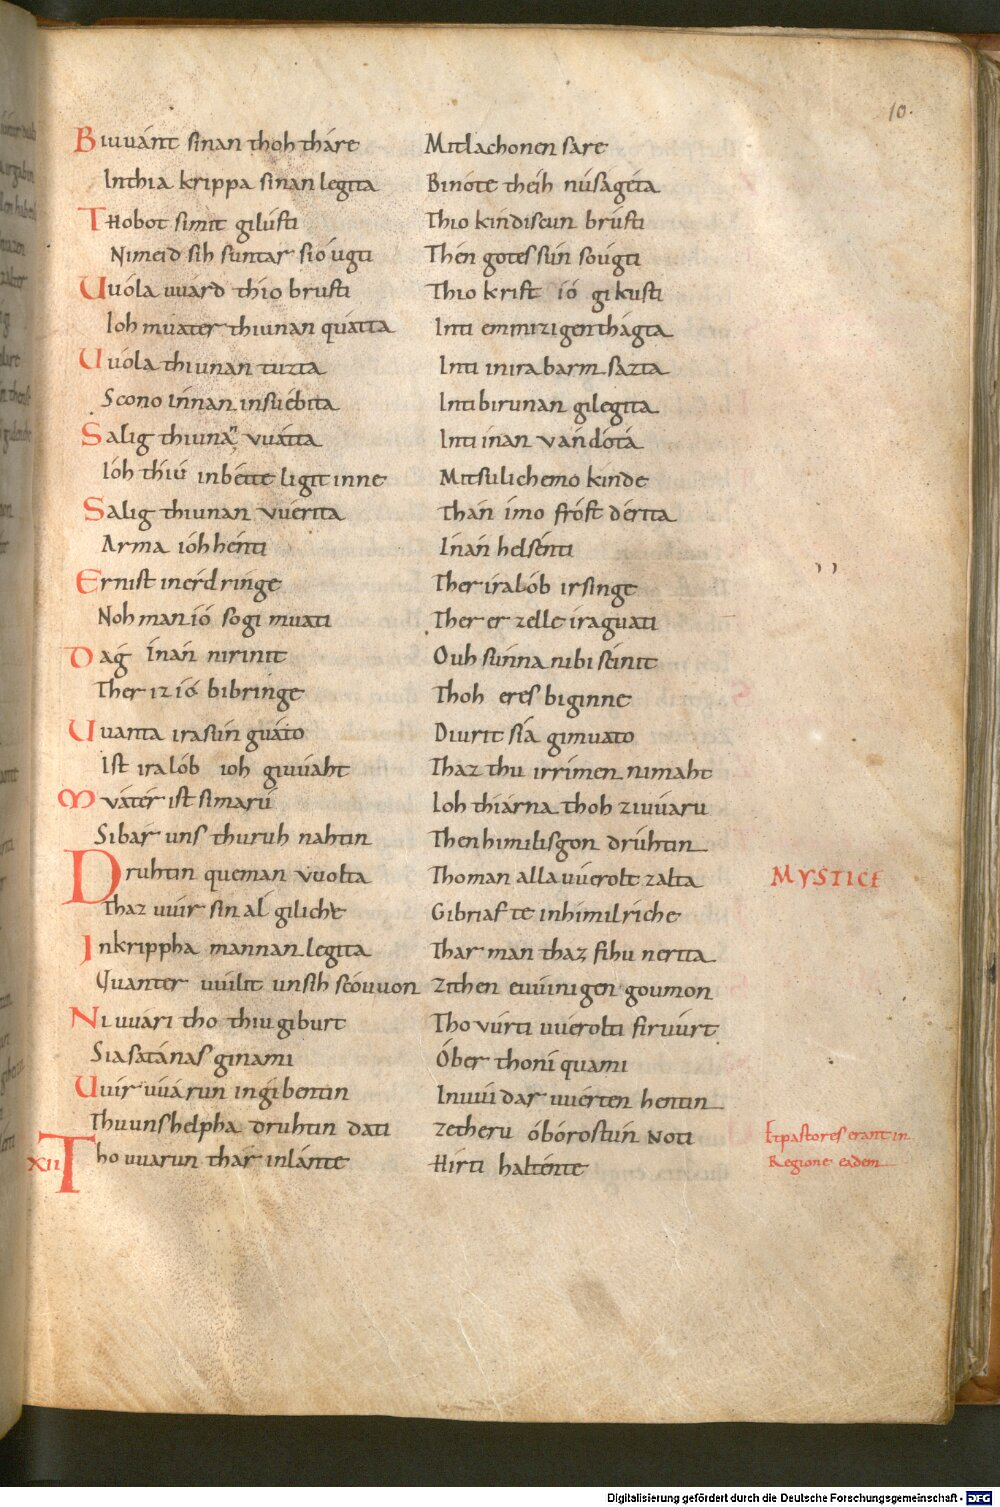 10.
Biuuánt sinan thoh tháre Mitlachonen sare
Inthia krippa sinan legita Binóte theih núsagéta
THobot simit gilústi Thio kindiscun brústi
Nimeid sih suntar sióugti Thén gotes sún sóugti
Uuóla uuárd thio brusti Thio krist ió gikusti
Ioh muater thiunan quátta Inti emmizigen thágta
Uuóla thiunan tuzta Inti inira barm sazta
Scono ínnan insuébita Inti birunan gilegita
Salig thiunan vuátta Inti ínan vándóta
Ióh thíu inbétte ligit inne Mit sulichemo kinde
Salig thiunan vuérita Thán ímo fróst dérita
Arma ióh hénti Ínán helsénti
Ernist inérdringe Ther íra lób irsinge
Noh man ió sogi muati Ther er zelle ira guati
Dag ínán nirinit Ouh súnna nibi scinit
Ther iz ió bibringe Thoh eres biginne
Uuanta ira sún guáto Diurit sía gimuato
Ist ira lób ioh giuuáht Thaz thu irrímen nimaht
Muáter ist si marú Ioh thiárna thoh zi uuáru
Sibar uns thuruh nahtin Then himilisgon drúhtin
Druhtin queman vuolta Tho man alla uúerolt zalta MYSTICE
Thaz uuir sin al giliche Gibriafte in himilriche
Inkrippha mannan legita Thar man thaz fihu nerita
Quanter uuilit unsih scóuuon Zi then euuinigen goumon
Ni uuári tho thiu giburt Tho vúrti uuérolti firuúrt
Sia satánas ginami Óber thoni quami
Uuir uuárun in gibentin In uuidar uuérten hentin
Thu uns helpha druhtin dati Zetheru óbórostún noti
XII Tho uuarun thar in lánte Hirti haltente Et pastores erant in
Regione eadem
Digitalisierung gefördert durch die Deutsche Forschungsgemeinschaft - DFG